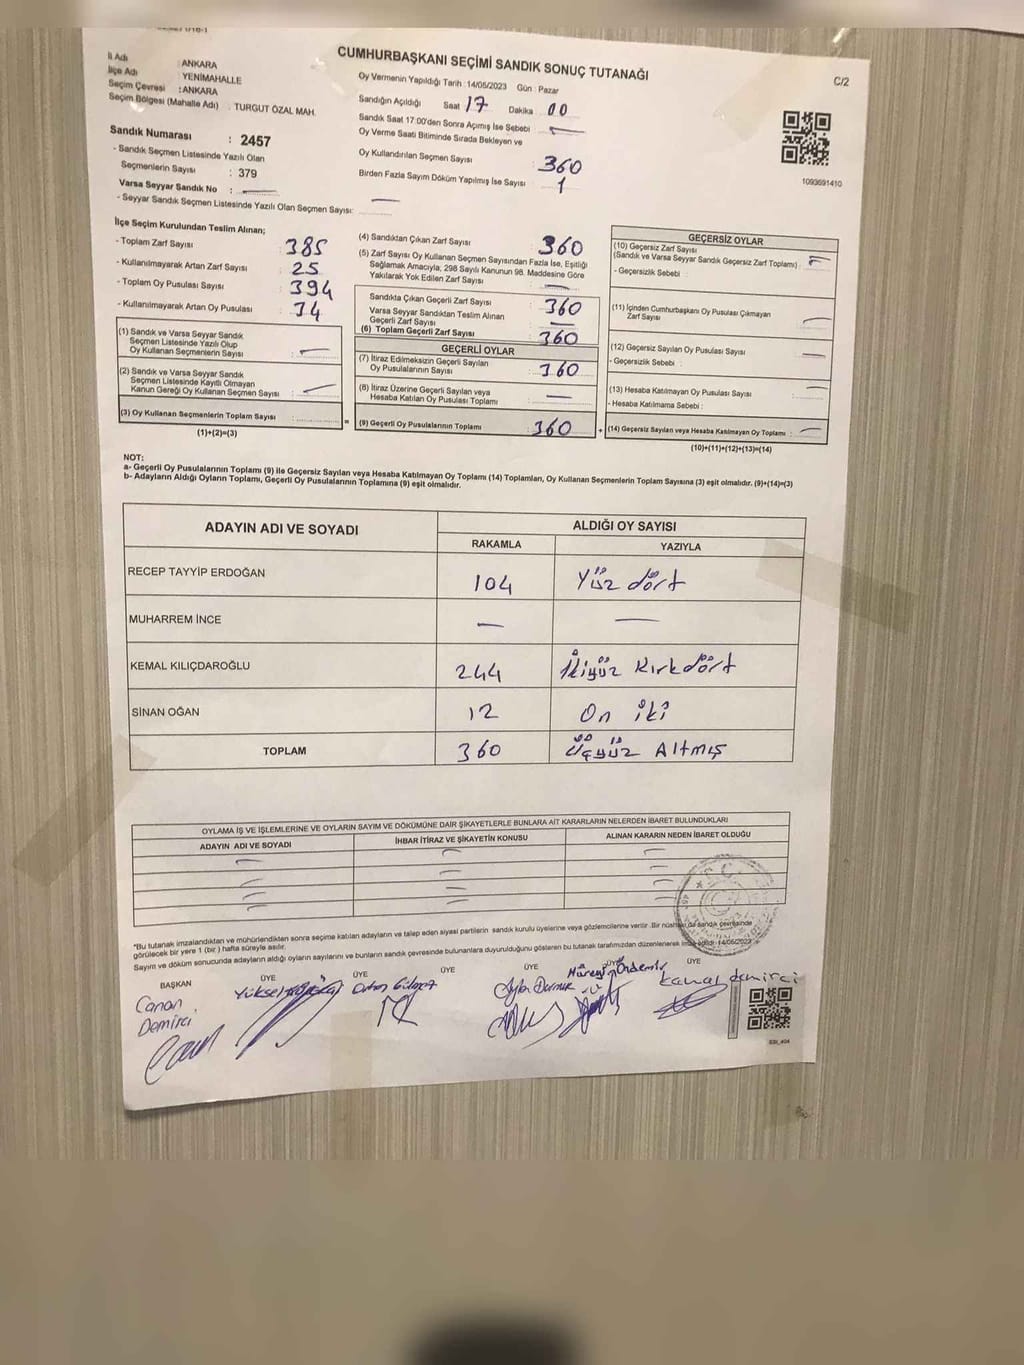 CUMHURBAŞKANI SEÇİMİ SANDIK SONUÇ TUTANAĞI
C/2
İl Adı : ANKARA
İlçe Adı : YENİMAHALLE
Seçim Çevresi : ANKARA
Seçim Bölgesi (Mahalle Adı) : TURGUT ÖZAL MAH.
Sandık Numarası : 2457
- Sandık Seçmen Listesinde Yazılı Olan
Seçmenlerin Sayısı : 379
Varsa Seyyar Sandık No :
- Seyyar Sandık Seçmen Listesinde Yazılı Olan Seçmen Sayısı:
Oy Vermenin Yapıldığı Tarih : 14/05/2023 Gün : Pazar
Sandığın Açıldığı Saat 17 Dakika 00
Sandık Saat 17:00'den Sonra Açımış İse Sebebi
Oy Verme Saati Bitiminde Sırada Bekleyen ve
Oy Kullandırılan Seçmen Sayısı : 360
Birden Fazla Sayım Döküm Yapılmış İse Sayısı : 1
1093691410
İlçe Seçim Kurulundan Teslim Alınan;
- Toplam Zarf Sayısı : 385
- Kullanılmayarak Artan Zarf Sayısı : 25
- Toplam Oy Pusulası Sayısı : 394
- Kullanılmayarak Artan Oy Pusulası : 34
(1) Sandık ve Varsa Seyyar Sandık
Seçmen Listesinde Yazılı Olup
Oy Kullanan Seçmenlerin Sayısı :
(2) Sandık ve Varsa Seyyar Sandık
Seçmen Listesinde Kayıtlı Olmayan
Kanun Gereği Oy Kullanan Seçmen Sayısı :
(3) Oy Kullanan Seçmenlerin Toplam Sayısı :
(1)+(2)=(3)
(4) Sandıktan Çıkan Zarf Sayısı : 360
(5) Zarf Sayısı Oy Kullanan Seçmen Sayısından Fazla İse, Eşitliği
Sağlamak Amacıyla, 298 Sayılı Kanunun 98. Maddesine Göre
Yakılarak Yok Edilen Zarf Sayısı :
Sandıkta Çıkan Geçerli Zarf Sayısı : 360
Varsa Seyyar Sandıktan Teslim Alınan
Geçerli Zarf Sayısı :
(6) Toplam Geçerli Zarf Sayısı : 360
GEÇERLİ OYLAR
(7) İtiraz Edilmeksizin Geçerli Sayılan
Oy Pusulalarının Sayısı : 360
(8) İtiraz Üzerine Geçerli Sayılan veya
Hesaba Katılan Oy Pusulası Toplamı :
(9) Geçerli Oy Pusulalarının Toplamı : 360
GEÇERSİZ OYLAR
(10) Geçersiz Zarf Sayısı
(Sandık ve Varsa Seyyar Sandık Geçersiz Zarf Toplamı) :
- Geçersizlik Sebebi :
(11) İçinden Cumhurbaşkanı Oy Pusulası Çıkmayan
Zarf Sayısı
(12) Geçersiz Sayılan Oy Pusulası Sayısı
- Geçersizlik Sebebi :
(13) Hesaba Katılmayan Oy Pusulası Sayısı
- Hesaba Katılmama Sebebi :
(14) Geçersiz Sayılan veya Hesaba Katılmayan Oy Toplamı :
(10)+(11)+(12)+(13)=(14)
NOT:
a- Geçerli Oy Pusulalarının Toplamı (9) ile Geçersiz Sayılan veya Hesaba Katılmayan Oy Toplamı (14) Toplamları, Oy Kullanan Seçmenlerin Toplam Sayısına (3) eşit olmalıdır. (9)+(14)=(3)
b- Adayların Aldığı Oyların Toplamı, Geçerli Oy Pusulalarının Toplamına (9) eşit olmalıdır.
ADAYIN ADI VE SOYADI ALDIĞI OY SAYISI
RAKAMLA YAZIYLA
RECEP TAYYİP ERDOĞAN 104 Yüz dört
MUHARREM İNCE — —
KEMAL KILIÇDAROĞLU 244 İkiyüz Kırkdört
SİNAN OĞAN 12 On iki
TOPLAM 360 Üçyüz Altmış
OYLAMA İŞ VE İŞLEMLERİNE VE OYLARIN SAYIM VE DÖKÜMÜNE DAİR ŞİKAYETLERLE BUNLARA AİT KARARLARIN NELERDEN İBARET BULUNDUKLARI
ADAYIN ADI VE SOYADI İHBAR İTİRAZ VE ŞİKAYETİN KONUSU ALINAN KARARIN NEDEN İBARET OLDUĞU
*Bu tutanak imzalandıktan ve mühürlendikten sonra seçime katılan adayların ve talep eden siyasi partilerin sandık kurulu üyelerine veya gözlemcilerine verilir .Bir nüshası da sandık çevresinde
görülecek bir yere 1 (bir ) hafta süreyle asılır.
Sayım ve döküm sonucunda adayların aldığı oyların sayılarını ve bunların sandık çevresinde bulunanlara duyurulduğunu gösteren bu tutanak tarafımızdan düzenlenerek 14/05/2023
BAŞKAN ÜYE ÜYE ÜYE ÜYE ÜYE ÜYE
Canan
Demirci
Yüksel
Kanat demirci